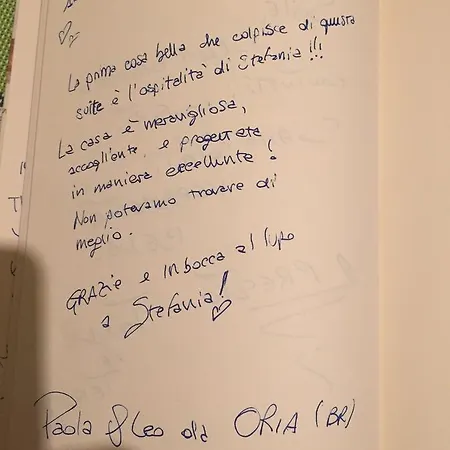 La prima cosa bella che colpisce di questa
suite è l'ospitalità di Stefania!!!
La casa è meravigliosa,
accogliente e progettata
in maniera eccellente!
Non potevamo trovare di
meglio.
GRAZIE e in bocca al lupo
a Stefania!
Paola & Leo da ORIA (BR)